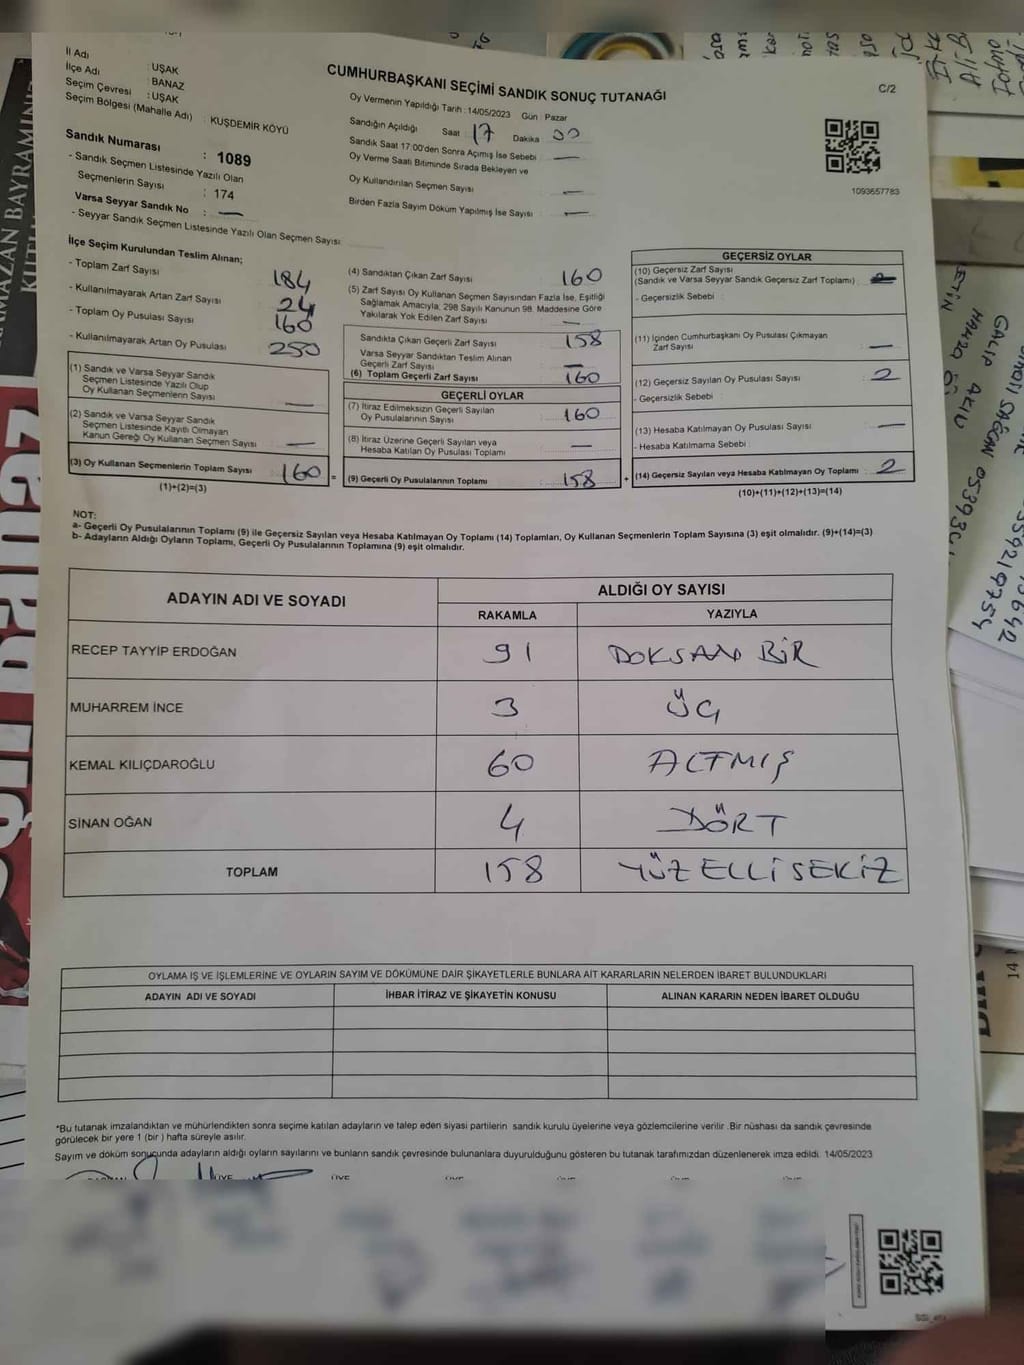 İl Adı : UŞAK
İlçe Adı : BANAZ
Seçim Çevresi : UŞAK
Seçim Bölgesi (Mahalle Adı) : KUŞDEMİR KÖYÜ
Sandık Numarası : 1089
- Sandık Seçmen Listesinde Yazılı Olan
Seçmenlerin Sayısı : 174
Varsa Seyyar Sandık No : —
- Seyyar Sandık Seçmen Listesinde Yazılı Olan Seçmen Sayısı
CUMHURBAŞKANI SEÇİMİ SANDIK SONUÇ TUTANAĞI
C/2
Oy Vermenin Yapıldığı Tarih : 14/05/2023 Gün : Pazar
Sandığın Açıldığı Saat 17 Dakika 00
Sandık Saat 17:00'den Sonra Açımış İse Sebebi —
Oy Verme Saati Bitiminde Sırada Bekleyen ve
Oy Kullandırılan Seçmen Sayısı —
Birden Fazla Sayım Döküm Yapılmış İse Sayısı —
1093657783
İlçe Seçim Kurulundan Teslim Alınan;
- Toplam Zarf Sayısı 184
- Kullanılmayarak Artan Zarf Sayısı 24
- Toplam Oy Pusulası Sayısı 160
- Kullanılmayarak Artan Oy Pusulası 250
(1) Sandık ve Varsa Seyyar Sandık
Seçmen Listesinde Yazılı Olup
Oy Kullanan Seçmenlerin Sayısı —
(2) Sandık ve Varsa Seyyar Sandık
Seçmen Listesinde Kayıtlı Olmayan
Kanun Gereği Oy Kullanan Seçmen Sayısı —
(3) Oy Kullanan Seçmenlerin Toplam Sayısı 160 =
(1)+(2)=(3)
(4) Sandıktan Çıkan Zarf Sayısı 160
(5) Zarf Sayısı Oy Kullanan Seçmen Sayısından Fazla İse, Eşitliği
Sağlamak Amacıyla, 298 Sayılı Kanunun 98. Maddesine Göre
Yakılarak Yok Edilen Zarf Sayısı —
Sandıkta Çıkan Geçerli Zarf Sayısı 158
Varsa Seyyar Sandıktan Teslim Alınan
Geçerli Zarf Sayısı —
(6) Toplam Geçerli Zarf Sayısı 160
GEÇERLİ OYLAR
(7) İtiraz Edilmeksizin Geçerli Sayılan
Oy Pusulalarının Sayısı 160
(8) İtiraz Üzerine Geçerli Sayılan veya
Hesaba Katılan Oy Pusulaları Toplamı —
(9) Geçerli Oy Pusulalarının Toplamı 158 +
GEÇERSİZ OYLAR
(10) Geçersiz Zarf Sayısı
(Sandık ve Varsa Seyyar Sandık Geçersiz Zarf Toplamı) :
- Geçersizlik Sebebi :
(11) İçinden Cumhurbaşkanı Oy Pusulası Çıkmayan
Zarf Sayısı —
(12) Geçersiz Sayılan Oy Pusulası Sayısı 2
- Geçersizlik Sebebi :
(13) Hesaba Katılmayan Oy Pusulası Sayısı —
- Hesaba Katılmama Sebebi :
(14) Geçersiz Sayılan veya Hesaba Katılmayan Oy Toplamı : 2
(10)+(11)+(12)+(13)=(14)
NOT:
a- Geçerli Oy Pusulalarının Toplamı (9) ile Geçersiz Sayılan veya Hesaba Katılmayan Oy Toplamı (14) Toplamları, Oy Kullanan Seçmenlerin Toplam Sayısına (3) eşit olmalıdır. (9)+(14)=(3)
b- Adayların Aldığı Oyların Toplamı, Geçerli Oy Pusulalarının Toplamına (9) eşit olmalıdır.
ADAYIN ADI VE SOYADI ALDIĞI OY SAYISI
RAKAMLA YAZIYLA
RECEP TAYYİP ERDOĞAN 91 DOKSAN BİR
MUHARREM İNCE 3 ÜÇ
KEMAL KILIÇDAROĞLU 60 ALTMIŞ
SİNAN OĞAN 4 DÖRT
TOPLAM 158 YÜZ ELLİ SEKİZ
OYLAMA İŞ VE İŞLEMLERİNE VE OYLARIN SAYIM VE DÖKÜMÜNE DAİR ŞİKAYETLERLE BUNLARA AİT KARARLARIN NELERDEN İBARET BULUNDUKLARI
ADAYIN ADI VE SOYADI İHBAR İTİRAZ VE ŞİKAYETİN KONUSU ALINAN KARARIN NEDEN İBARET OLDUĞU
*Bu tutanak imzalandıktan ve mühürlendikten sonra seçime katılan adayların ve talep eden siyasi partilerin sandık kurulu üyelerine veya gözlemcilerine verilir .Bir nüshası da sandık çevresinde
görülecek bir yere 1 (bir ) hafta süreyle asılır.
Sayım ve döküm sonucunda adayların aldığı oyların sayılarını ve bunların sandık çevresinde bulunanlara duyurulduğunu gösteren bu tutanak tarafımızdan düzenlenerek imza edildi. 14/05/2023
ÜYE ÜYE